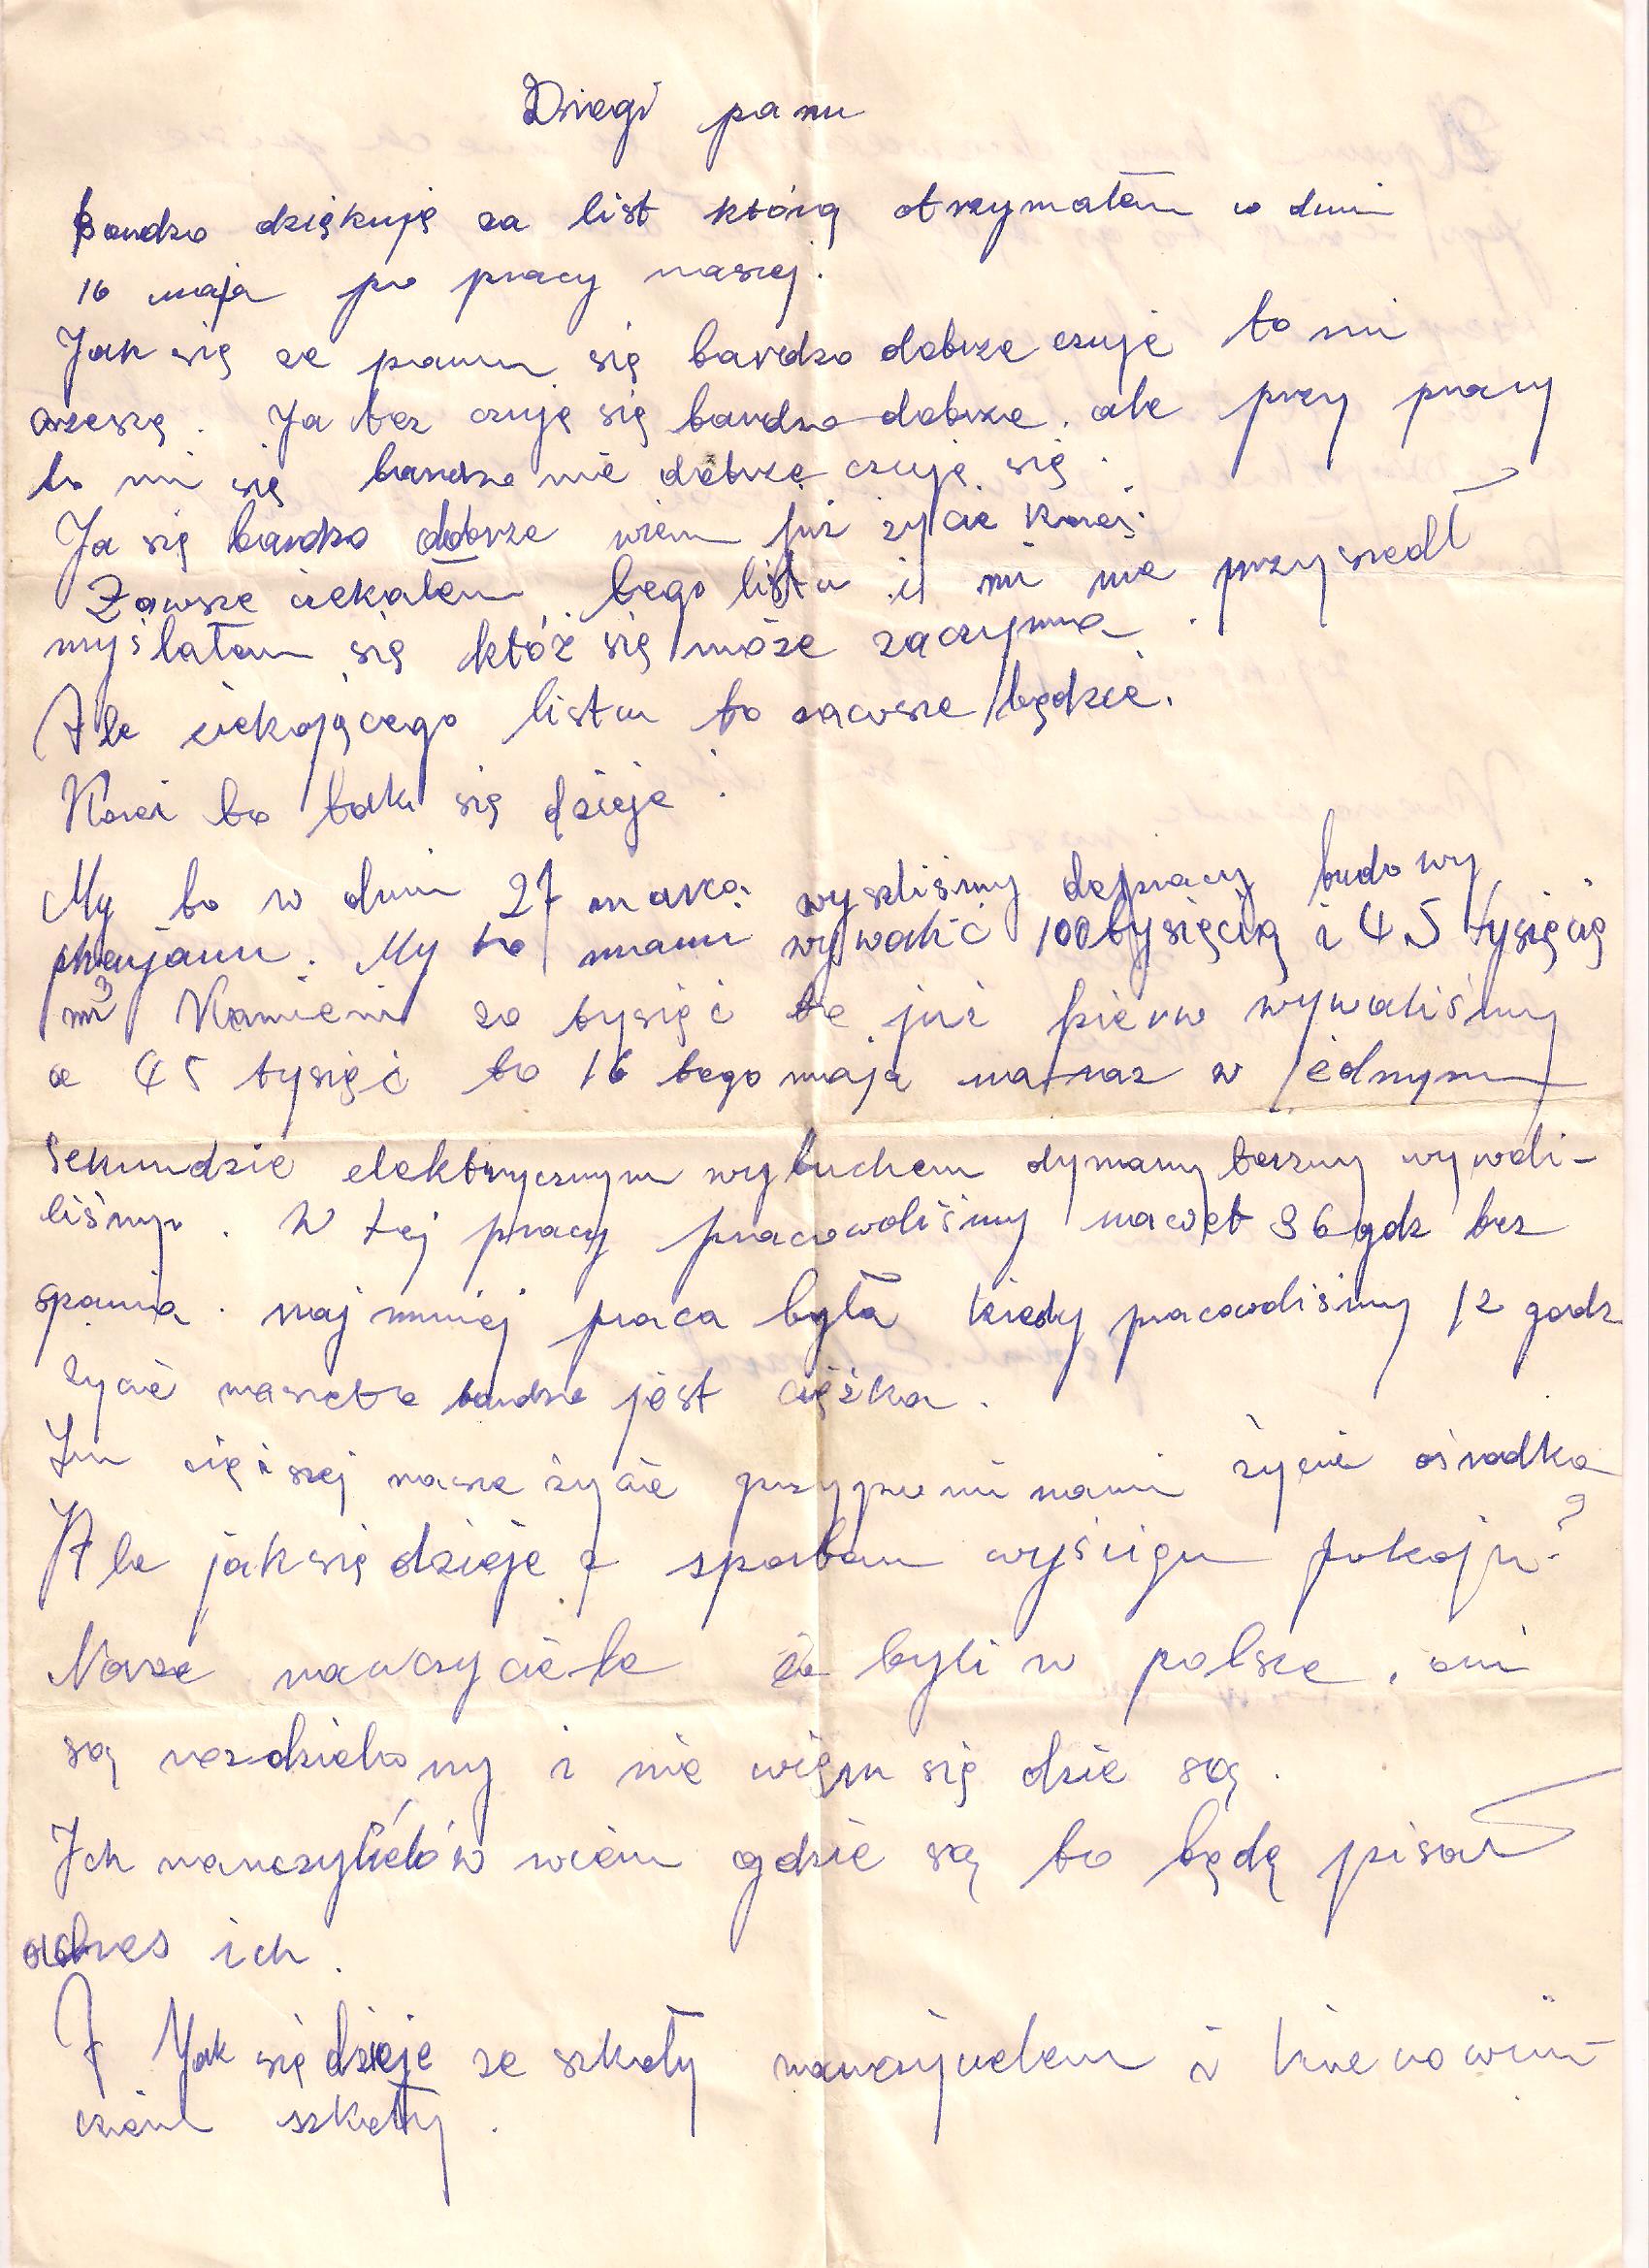 Drogi panu
bardzo dziękuję za list którą otrzymałem w dniu
16 maja po pracy naszej.
Jak się ze panu się bardzo dobrze czuje to mi
Ja też czuję się bardzo dobrze. ale przy pracy
to mi się bardzo nie dobrze czuję się.
Ja się bardzo dobrze wiem już życie
Zawsze ciekałem tego listu i mi nie przyszedł
myślałam się któż się może zaczyma.
Ale ciekającego listu to zawsze będzie.
to tak się dzieje.
My to w dniu 27 marca wyszliśmy do pracy budowy
phenjanu. My to mami wywalić 100 tysięcią i 45 tysięcię
m3 Kamieni 20 tysięć to już pierw wywaliśmy
a 45 tysięć to 16 tego maja na raz w jednym
sekundzie elektrycznym wybuchem dymamy wywali-
liśmy. W tej pracy pracowaliśmy nawet 36 gdz bez
spania. najmniej praca była kiedy pracowaliśmy 12 godz
życie nasze to bardzo jest ciężka.
Im cięższej nasze życie przypomi nami życie ośrodka
Ale jak się dzieje z sportem wyścigu pokoju?
Nasze nauczyciele co byli w polsce, oni
są rozdzielony i nie wiem się dzie są.
Ich nauczycielów wiem gdzie są to będę pisał
adres ich.
I Jak się dzieje ze szkoły nauczycielem i kierowni-
czem szkoły.